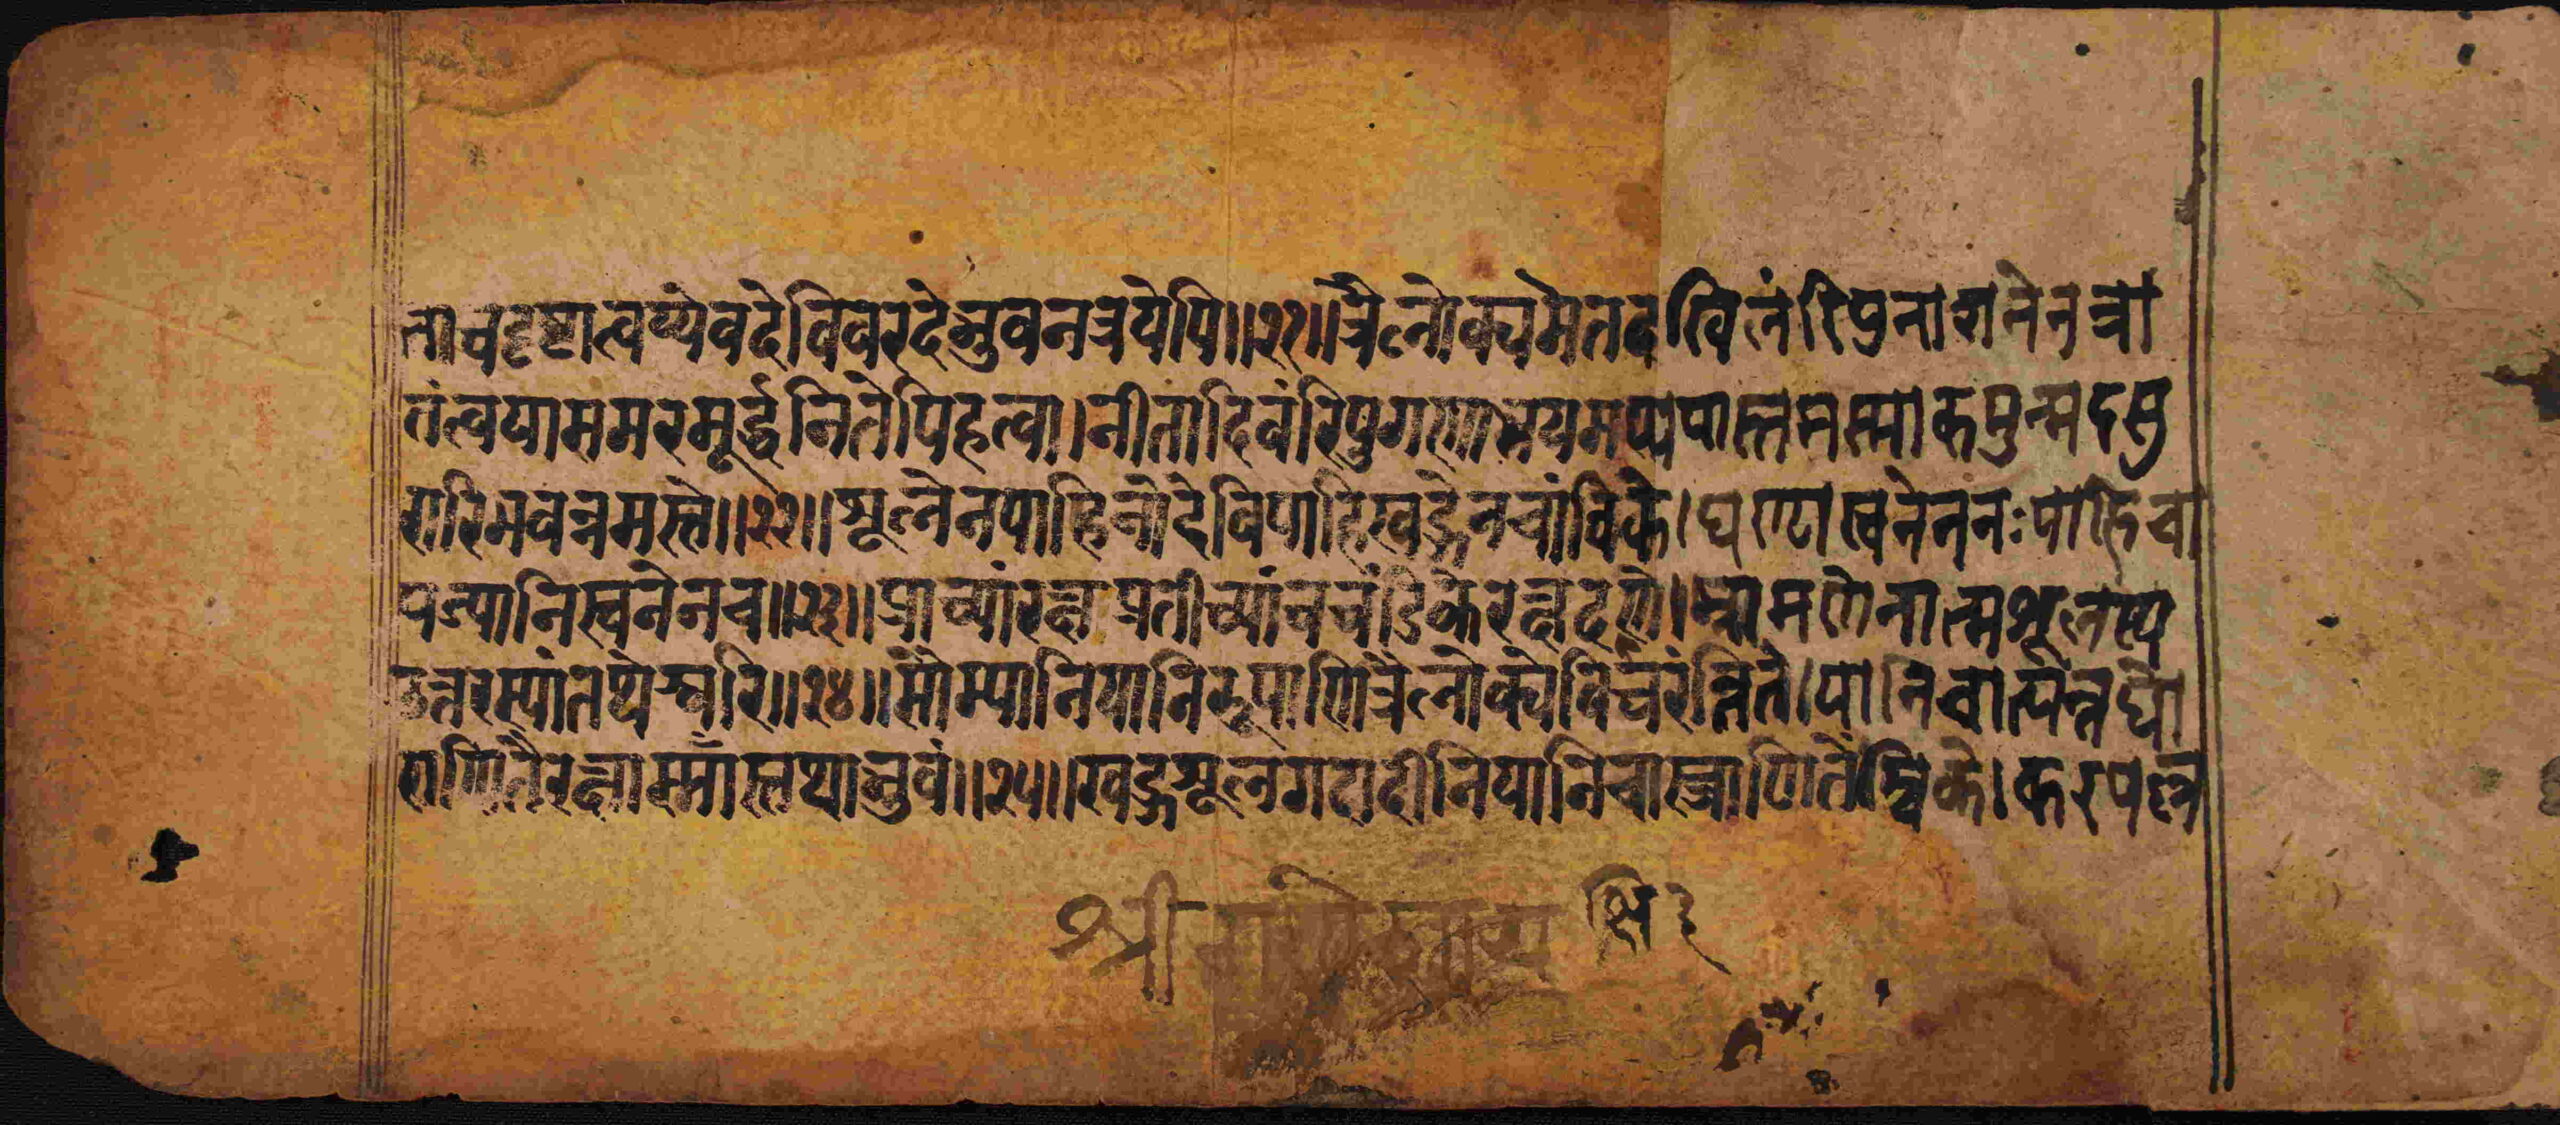 ता च दृष्टा त्वय्येव देवि वरदे भुवनत्रयेपि॥२१॥त्रैलोक्यमेतदखिलं रिपुनाशनेन त्रा
तं त्वया समरमूर्द्धनि तेपि हत्वा।नीता दिवं रिपुगणा भयमप्यपास्तमस्माकमुन्मदसु
रारिभवन्नमस्ते॥२२॥शूलेन पाहि नो देवि पाहि खड्गेन चांविके।घण्टास्वनेन नः पाहि चा
पज्यानिस्वनेन च॥२३॥प्राच्यां रक्ष प्रतीच्यां च चंडिके रक्ष दक्षिणे।भ्रामणेनात्मशूलस्य
उत्तरस्यां तथेश्वरि॥२४॥सौम्यानि यानि रूपाणि त्रैलोक्ये विचरंति ते।यानि चात्यन्तघो
राणि तै रक्षास्माँस्तथा भुवं॥२५॥खड्गशूलगदादीनि यानि चास्त्राणि तेम्बिके।करपल्ल
श्री